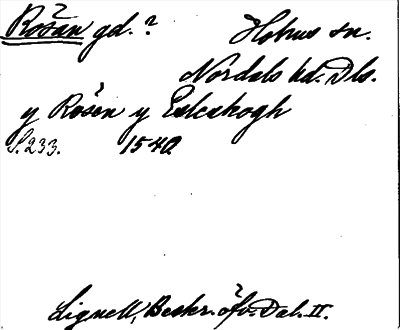 Rošån gd.? Holms sn.
Nordals hd. Dls.
y Rošen y Esleskogh
S. 233. 1540.
Lignell, Beskr. öfv. Dal. II.